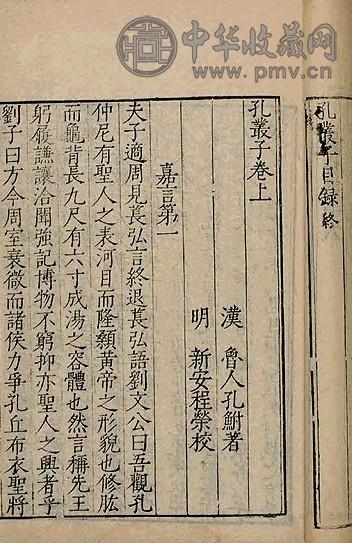 中华收藏网
www.pmv.cn
孔叢子目録終
孔叢子卷上
漢 魯人孔鮒著
明 新安程榮校
嘉言第一
夫子適周見萇弘言終退萇弘語劉文公曰吾觀孔
仲尼有聖人之表河目而隆顙黃帝之形貌也修肱
而龜背長九尺有六寸成湯之容體也然言稱先王
躬履謙讓洽聞強記博物不窮抑亦聖人之興者乎
劉子曰方今周室衰微而諸侯力爭孔丘布衣聖將